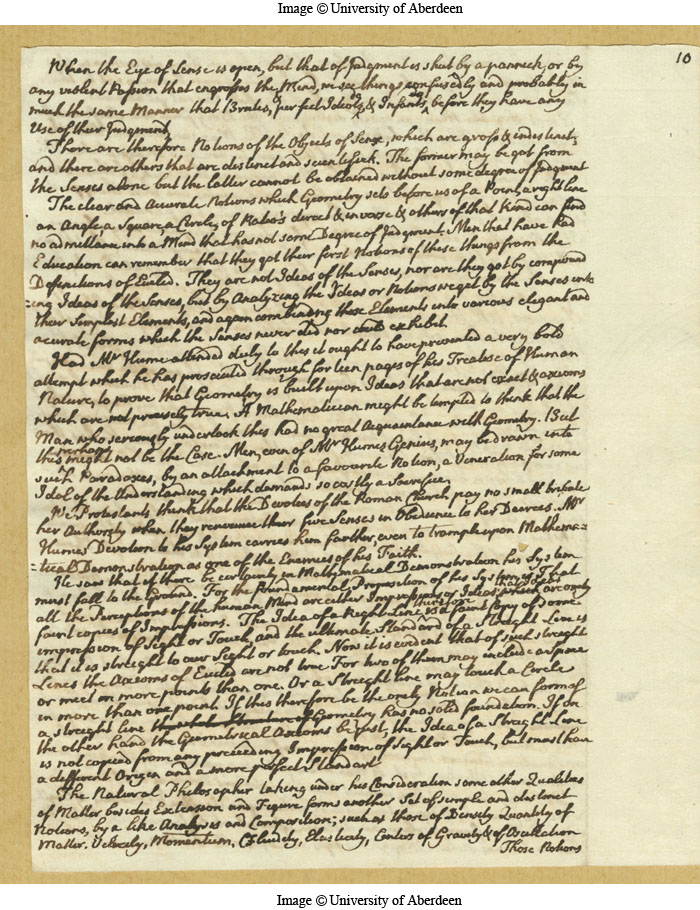 Image © University of Aberdeen
10
When the Eye of Sense is open, but that of Judgment is shut by a panneck, or by
any violent Passion that engrosses the Mind, we see things confusedly and probably in
much the same Manner that Brutes, perfect Ideots & Infants, before they have any
Use of their Judgment,
There are therefore Notions of the Objects of Sense, which are gross & indistinct;
and there are others that are distinct and scientifick. The former may be got from
the Senses alone but the latter cannot be obtained without some degree of Judgment
The clear and Accurate Notions which Geometry sets before us of a Point, a right line
an Angle, a Square, a Circle, of Ratio's direct & inverse & others of that Kind can find
no admittance into a Mind that has not some Degree of Judgment. Men that have had
Education can remember that they got their first Notions of these things from the
Definitions of Euclid. They are not Ideas of the Senses, nor are they got by compound
=ing Ideas of the Senses, but by Analyzing the Ideas or Notions we get by the Senses into
their Simplest Elements, and again combining these Elements into various elegant and
accurate forms which the Senses never did nor could exhibit.
Had Mr Hume attended duly to this it ought to have prevented a very bold
attempt which he has prosecuted through forteen pages of his Treatise of Human
Nature, to prove that Geometry is built upon Ideas that are not exact & axioms
which are not precisely true. A Mathematician might be tempted to think that the
Man who seriously undertook this had no great Acquaintance with Geometry. But
perhaps
this might not be the Case. Men, even of Mr Humes Genius, may be drawn into
such Paradoxes, by an attachment to a favourite Notion, a Veneration for some
Idol of the Understanding which demands so costly a Sacrifice,
We Protestants think that the Devotees of the Roman Church, pay no small tribute
her Authority when they renounce their five Senses in Obedience to his Decrees. Mr
Humes Devotion to his System carries him farther, even to trample upon Mathema=
=tical Demonstration as one of the Enemies of his Faith.
He saw that if there be certainty in Mathematical Demonstration his System
must fall to the Ground. For the fundamental Proposition of his System is That
all the Perceptions of the human Mind are either Impressions or Ideas which are only
faint copies of Impressions. The Idea of a Right Line therefore is a faint Copy of some
impression of Sight or Touch, and the ultimate Standard of a Streight Line is
that it is streight to our Sight or touch. Now it is evident that of such streight
Lines the Axioms of Euclid are not true For two of them may include a Space
or meet in more points than one. Or a Streight line may touch a Circle
in more than one point. If this therefore be the only Notion we can form of
a streight line Geometry has no solid foundation. If on
the other hand the Geometrical Axioms be just, the Idea of a Streight Line
is not copied from any preceeding Impression of Sight or Touch, but must have
a different Origin and a more perfect Standart
The Natural Philosopher taking under his Consideration some other Qualities
of Matter besides Extension and Figure forms another Set of simple and distinct
Notions, by a like Analysis and Composition; such as those of Density Quantity of
Matter. Velocity, Momentum, Fluidity, Elasticity, Centers of Gravity & of Oscillation
Those Notions
Image © University of Aberdeen